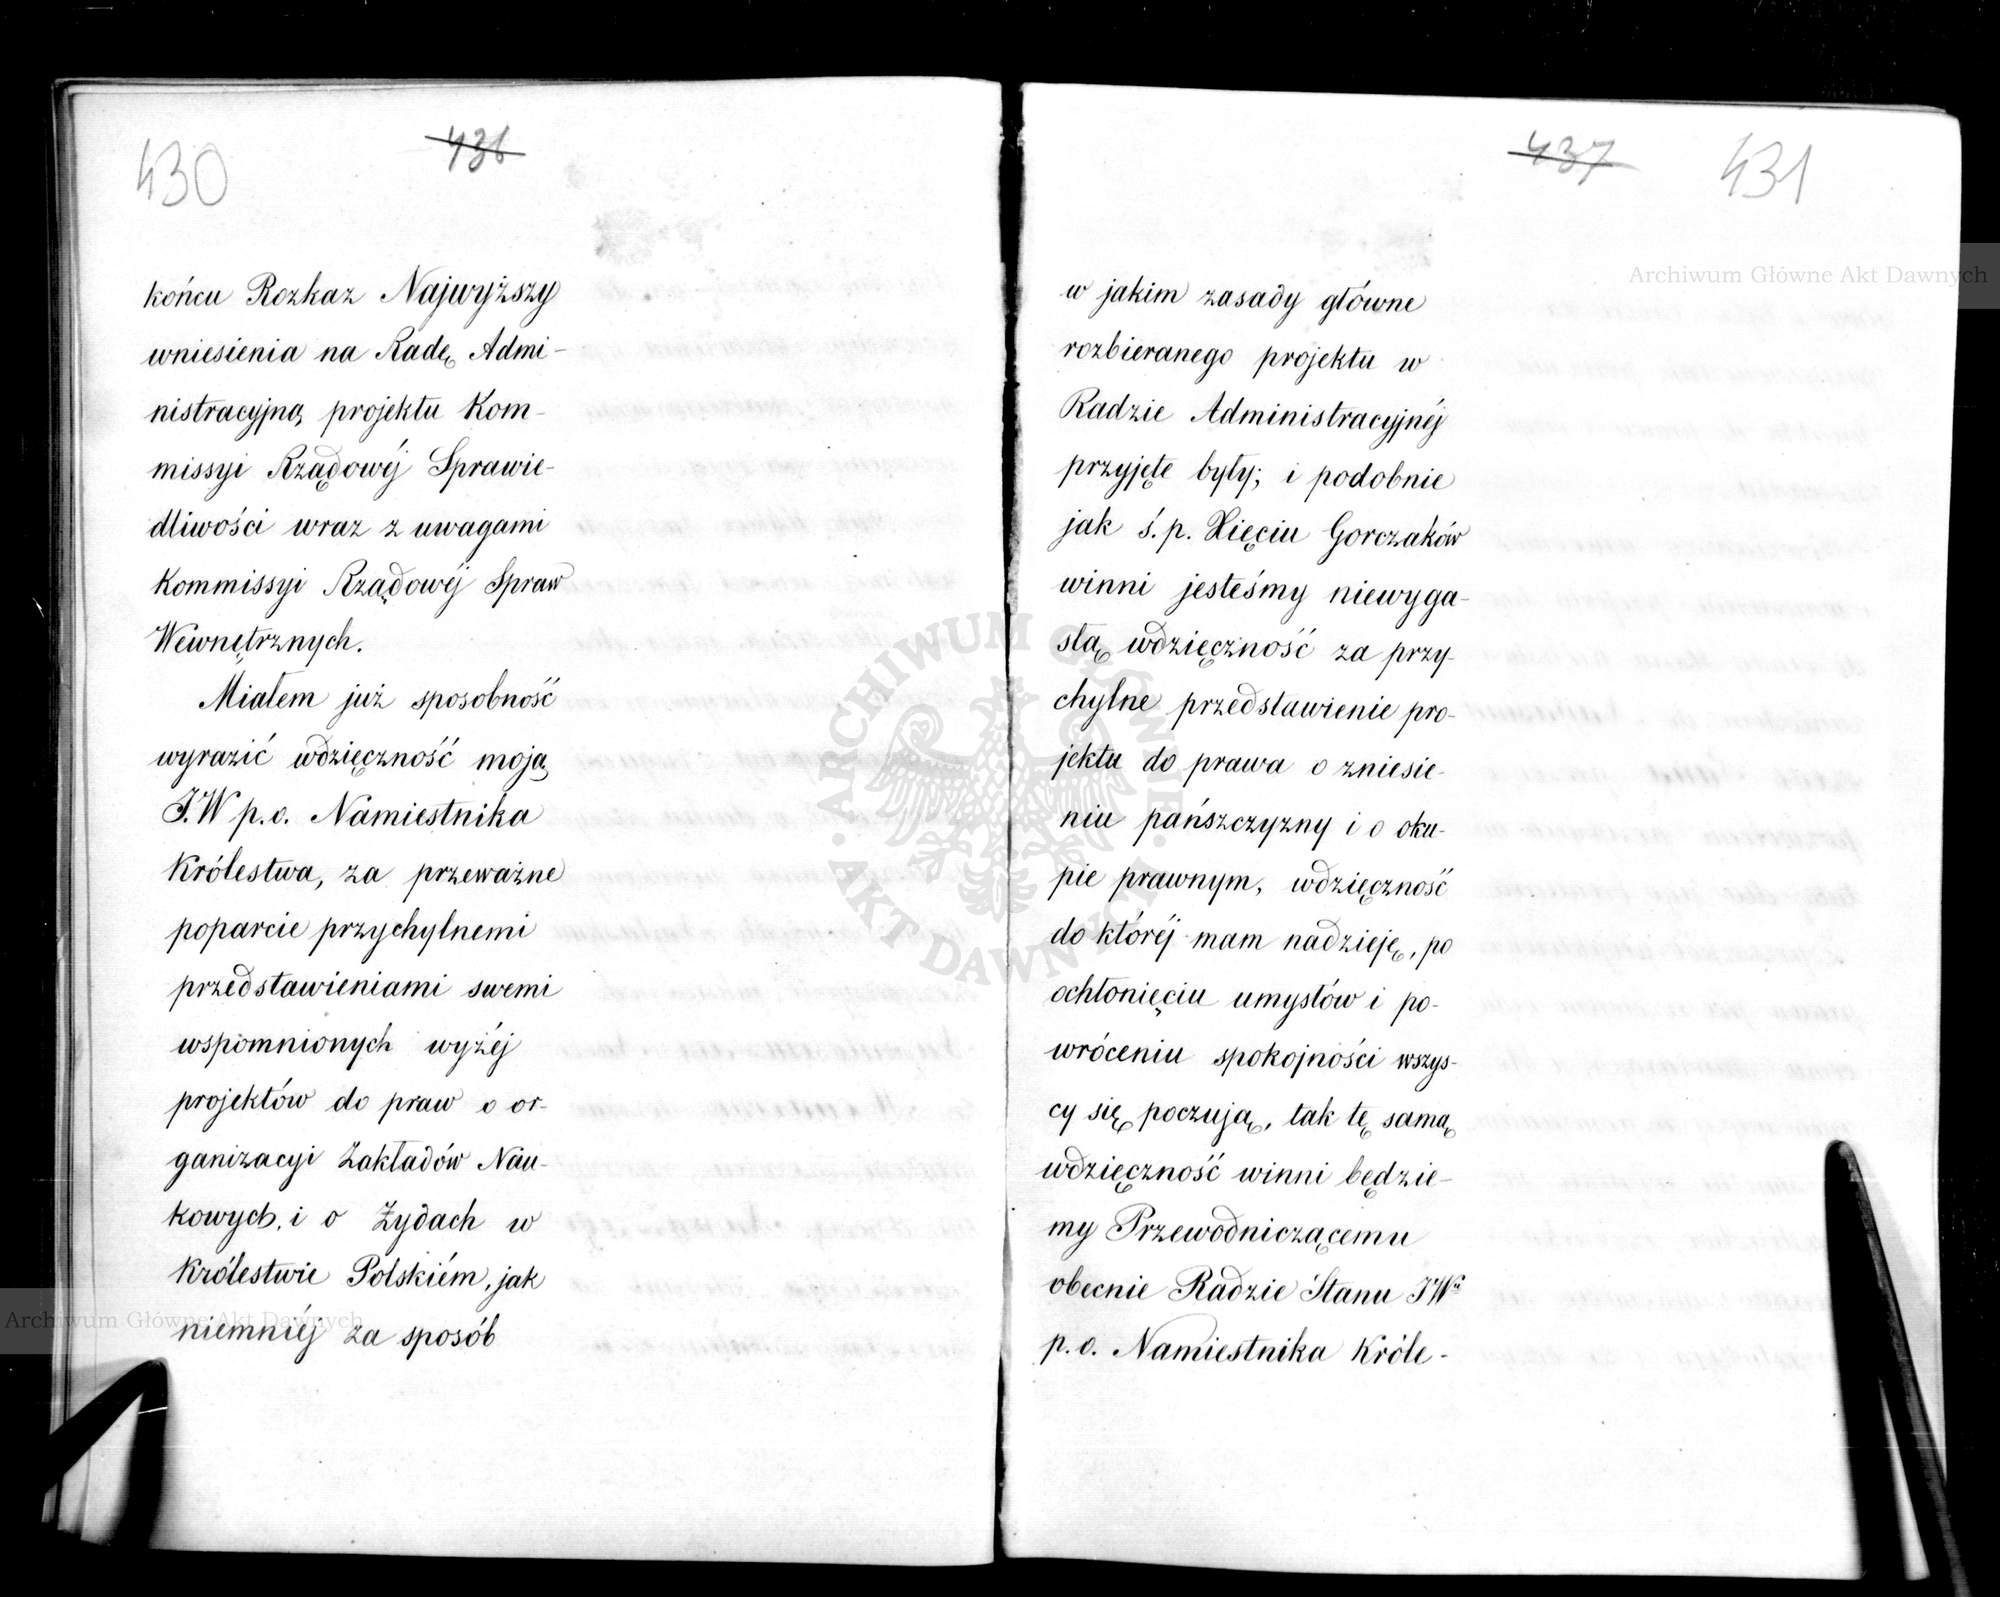 430
436
końcu Rozkaz Najwyższy
wniesienia na Radę Admi-
nistracyjną projektu Kom-
missyi Rządowéj Sprawie-
dliwości wraz z uwagami
Kommissyi Rządowéj Spraw
Wewnętrznych.
Miałem już sposobność
wyrazić wdzięczność moją
J.W p.o. Namiestnika
Królestwa, za przeważne
poparcie przychylnemi
przedstawieniami swemi
wspomnionych wyżéj
projektów do praw o or-
ganizacyi Zakładów Nau-
kowych, i o Żydach w
Królestwie Polskiém, jak
niemniéj za sposób
437
431
w jakim zasady główne
rozbieranego projektu w
Radzie Administracyjnéj
przyjęte były; i podobnie
jak ś.p. Xięciu Gorczaków
winni jesteśmy niewyga-
słą wdzięczność za przy-
chylne przedstawienie pro-
jektu do prawa o zniesie-
niu pańszczyzny i o oku-
pie prawnym, wdzięczność
do któréj mam nadzieję, po
ochłonięciu umysłów i po-
wróceniu spokojności wszys-
cy się poczują, tak tę samą
wdzięczność winni będzie-
my Przewodniczącemu
obecnie Radzie Stanu JWu
p.o. Namiestnika Króle-
Archiwum Główne Akt Dawnych
ARCHIWUM GŁÓWNE AKT DAWNYCH
Archiwum Główne Akt Dawnych